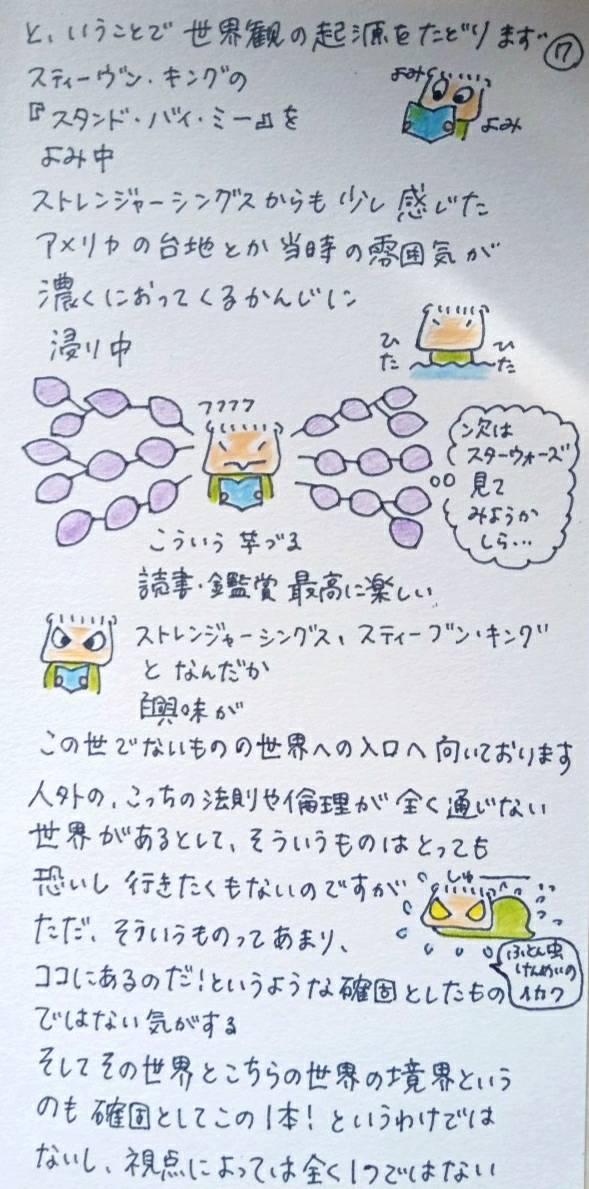 と、いうことで 世界観の起源をたどります ⑰
スティーヴン・キングの
『スタンド・バイ・ミー』を
よみ中
よみ
よみ
ストレンジャーシングスからも 少し 感じた
アメリカの台地とか当時の雰囲気が
濃くにおってくるかんじに
浸り中
ひた
ひた
フフフフ
次は
スターウォーズ
見て
みようか
しら…
こういう 芋づる
読書・鑑賞 最高に楽しい
ストレンジャーシングス、スティーブン・キング
と なんだか
興味が
この世でないものの世界への入口へ向いております
人外の、こっちの法則や倫理が 全く通じない
世界があるとして、そういうものはとっても
恐いし 行きたくもないのですが
しゅー
ただ、そういうものってあまり、
ふとん虫
けんめいの
イカク
ココにあるのだ!というような確固としたもの
ではない気がする
そしてその世界とこちらの世界の境界という
のも 確固としてこの1本!というわけでは
ないし、視点によっては全く1つではない